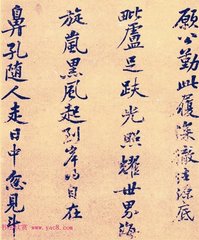 願公勤此護深徹法源底
毗盧足趺光照耀世界海
旋嵐黑風起到岸得自在
鼻孔隨人走日中忽見斗
www.yac8.com